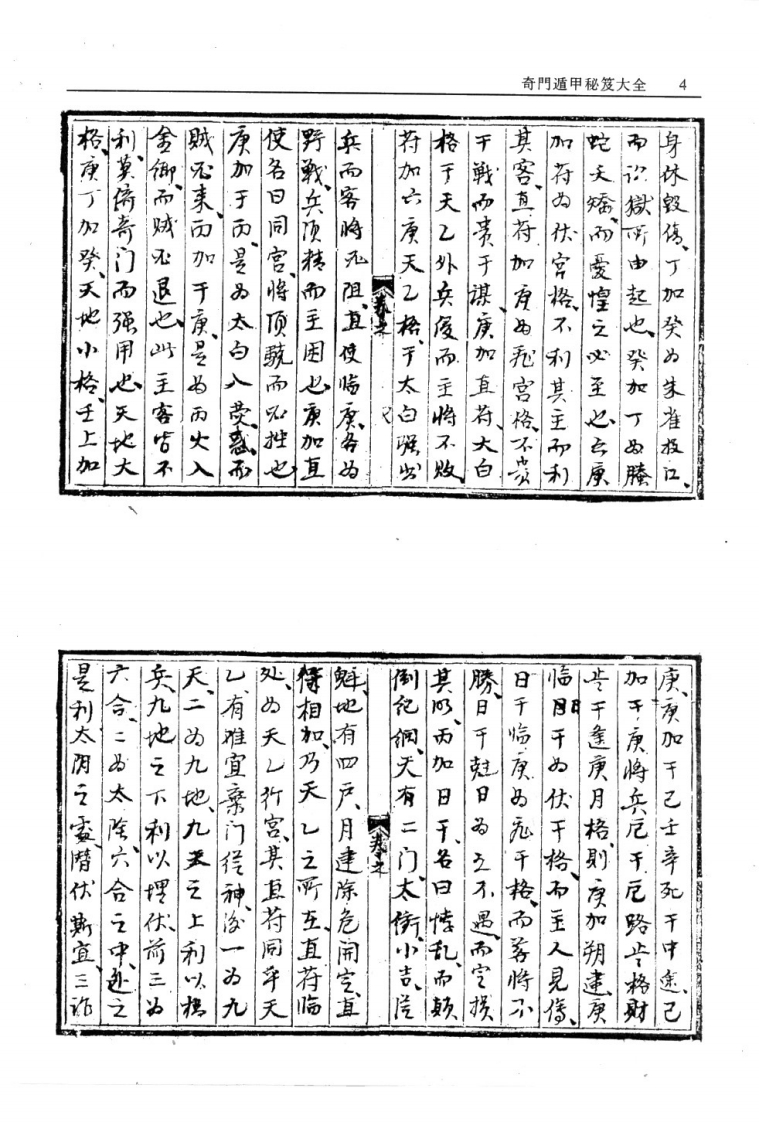 奇門遁甲秘笈大全 4
身休毀傷、丁加癸为朱雀投江、
而訟獄所由起也、癸加丁为螣
蛇夭矯、而憂惶之必至也、庚
加符为伏宫格、不利其主而利
其客、直符加庚为飛宫格、不
于戰而貴于謀、庚加直符、大白
格于天乙外兵復而主将不敗、
符加六庚天乙格、于太白强出
兵而客将九阻、直使临庚、各为
野戰、兵頂精而主困也、庚加直
使名曰同宫、将頂驍而必挫也
庚加于丙、是为太白入荧惑、而
賊必来、丙加于庚、是为丙火入
金御、而贼必退也、此主客皆不
利、莫倚奇门而强用也、天地大
格、庚丁加癸、天地小格、壬上加
庚、庚加于己壬辛死于中途、己
加于庚、将兵厄于厄路、格財
于逢庚月格、則庚加朔建、庚
临日干为伏干格、而主人見傷、
日干临庚为飛干格、而客将不
勝、日干尅日为五不遇、而定损
其明、丙加日干、名曰悖乱、而顛
倒纪綱、天有二门、太衝、小吉、從
魁、地有四户、月建除危開定、直
符相加、乃天乙之所在、直符临
处、为天乙行宫、其直符同乎天
乙、有难宜弃门從神、後一为九
天、二为九地、九天之上利以揚
兵、九地之下利以埋伏、前三为
六合、二为太陰、六合之中、之
是利太阴之處、潜伏斯宜、三诈